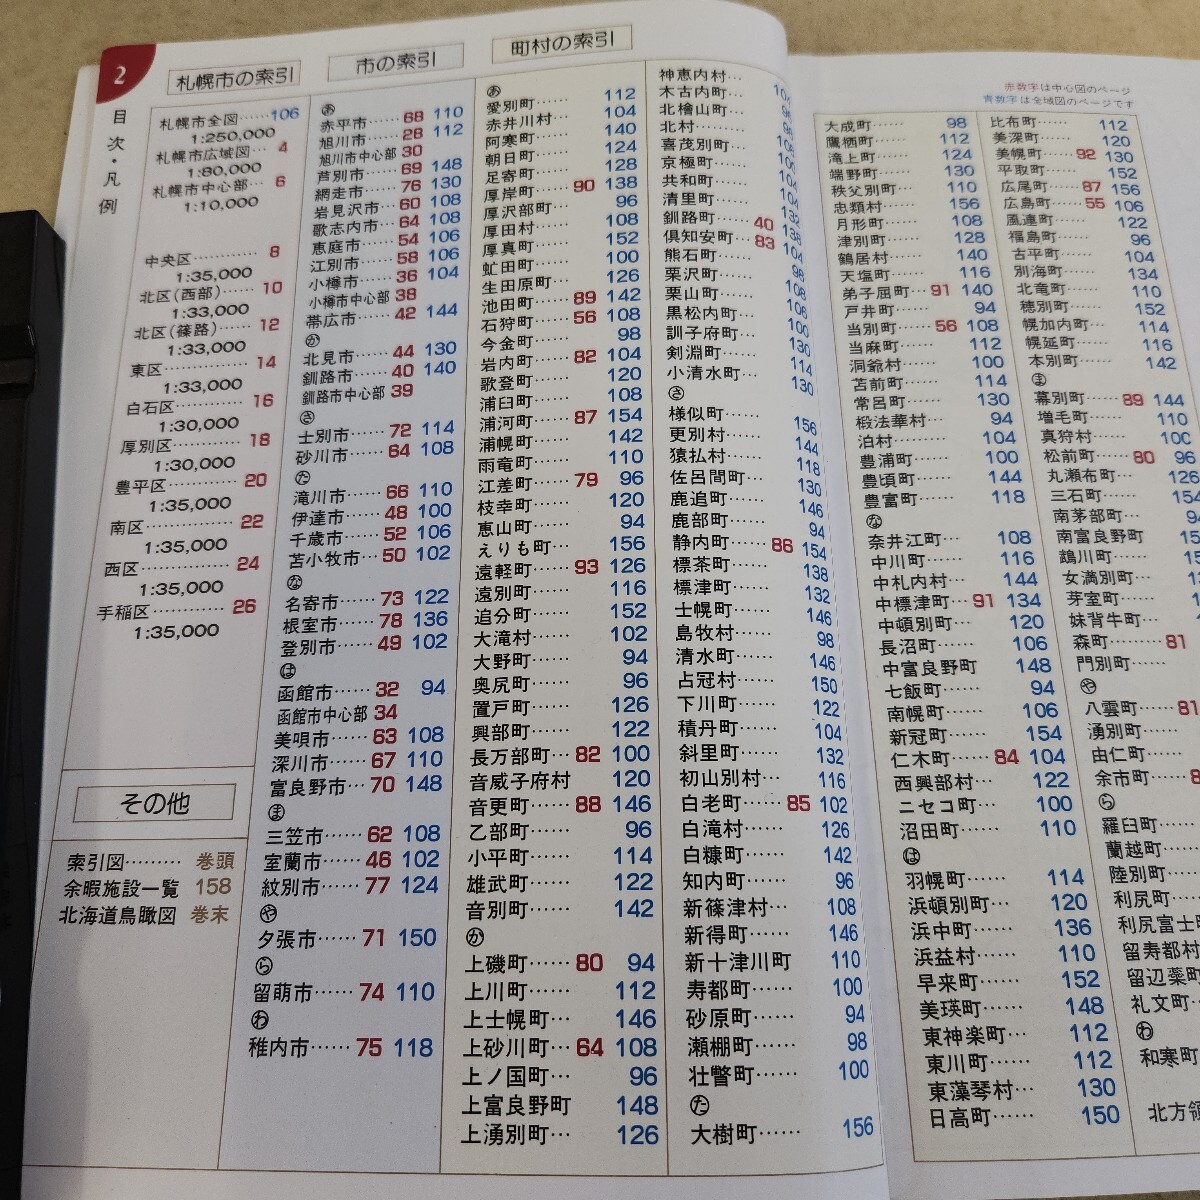 2
目次・凡例
札幌市の索引
札幌市全図……106
1:250,000
札幌市広域図… 4
1:80,000
札幌市中心部… 6
1:10,000
中央区………… 8
1:35,000
北区(西部)…… 10
1:33,000
北区(篠路)…… 12
1:33,000
東区………… 14
1:33,000
白石区………… 16
1:30,000
厚別区………… 18
1:30,000
豊平区………… 20
1:35,000
南区………… 22
1:35,000
西区………… 24
1:35,000
手稲区………… 26
1:35,000
その他
索引図……… 巻頭
余暇施設一覧 158
北海道鳥瞰図 巻末
市の索引
あ
赤平市…… 68 110
旭川市…… 28 112
旭川市中心部 30
芦別市…… 69 148
網走市…… 76 130
岩見沢市… 60 108
歌志内市… 64 108
恵庭市…… 54 106
江別市…… 58 106
小樽市…… 36 104
小樽市中心部 38
帯広市…… 42 144
か
北見市…… 44 130
釧路市…… 40 140
釧路市中心部 39
さ
士別市…… 72 114
砂川市…… 64 108
た
滝川市…… 66 110
伊達市…… 48 100
千歳市…… 52 106
苫小牧市… 50 102
な
名寄市…… 73 122
根室市…… 78 136
登別市…… 49 102
は
函館市…… 32 94
函館市中心部 34
美唄市…… 63 108
深川市…… 67 110
富良野市… 70 148
ま
三笠市…… 62 108
室蘭市…… 46 102
紋別市…… 77 124
や
夕張市…… 71 150
ら
留萌市…… 74 110
わ
稚内市…… 75 118
町村の索引
あ
愛別町…… 112
赤井川村… 104
阿寒町…… 140
朝日町…… 124
足寄町…… 128
厚岸町…… 90 138
厚沢部町… 96
厚田村…… 108
厚真町…… 152
虻田町…… 100
生田原町… 126
池田町…… 89 142
石狩町…… 56 108
今金町…… 98
岩内町…… 82 104
歌登町…… 120
浦臼町…… 108
浦河町…… 87 154
浦幌町…… 142
雨竜町…… 110
江差町…… 79 96
枝幸町…… 120
恵山町…… 94
えりも町… 156
遠軽町…… 93 126
遠別町…… 116
追分町…… 152
大滝村…… 102
大野町…… 94
奥尻町…… 96
置戸町…… 126
興部町…… 122
長万部町… 82 100
音威子府村 120
音更町…… 88 146
乙部町…… 96
小平町…… 114
雄武町…… 122
音別町…… 142
か
上磯町…… 80 94
上川町…… 112
上士幌町… 146
上砂川町… 64 108
上ノ国町… 96
上富良野町 148
上湧別町… 126
神恵内村…
木古内町…
北檜山町…
北村………
喜茂別町…
京極町……
共和町……
清里町……
釧路町…… 40 138
倶知安町… 83 104
熊石町…… 98
栗沢町…… 108
栗山町…… 106
黒松内町… 100
訓子府町… 130
剣淵町…… 114
小清水町… 130
さ
様似町…… 156
更別村…… 144
猿払村…… 118
佐呂間町… 130
鹿追町…… 146
鹿部町…… 94
静内町…… 86 154
標茶町…… 138
標津町…… 132
士幌町…… 146
島牧村…… 98
清水町…… 146
占冠村…… 150
下川町…… 122
積丹町…… 104
斜里町…… 132
初山別村… 116
白老町…… 85 102
白滝村…… 126
白糠町…… 142
知内町…… 96
新篠津村… 108
新得町…… 146
新十津川町 110
寿都町…… 100
砂原町…… 94
瀬棚町…… 98
壮瞥町…… 100
た
大樹町…… 156
赤数字は中心図のページ
青数字は全域図のページです
大成町…… 98
鷹栖町…… 112
滝上町…… 124
端野町…… 130
秩父別町… 110
忠類村…… 156
月形町…… 108
津別町…… 128
鶴居村…… 140
天塩町…… 116
弟子屈町… 91 140
戸井町…… 94
当別町…… 56 108
当麻町…… 112
洞爺村…… 100
苫前町…… 114
常呂町…… 130
椴法華村… 94
泊村……… 104
豊浦町…… 100
豊頃町…… 144
豊富町…… 118
な
奈井江町… 108
中川町…… 116
中札内村… 144
中標津町… 91 134
中頓別町… 120
長沼町…… 106
中富良野町 148
七飯町…… 94
南幌町…… 106
新冠町…… 154
仁木町…… 84 104
西興部村… 122
ニセコ町… 100
沼田町…… 110
は
羽幌町…… 114
浜頓別町… 120
浜中町…… 136
浜益村…… 110
早来町…… 152
美瑛町…… 148
東神楽町… 112
東川町…… 112
東藻琴村… 130
日高町…… 150
比布町…… 112
美深町…… 120
美幌町…… 92 130
平取町…… 152
広尾町…… 87 156
広島町…… 55 106
風連町…… 122
福島町…… 96
古平町…… 104
別海町…… 134
北竜町…… 110
穂別町…… 152
幌加内町… 114
幌延町…… 116
本別町…… 142
ま
幕別町…… 89 144
増毛町…… 110
真狩村…… 100
松前町…… 80 96
丸瀬布町… 126
三石町…… 154
南茅部町…
南富良野町
鵡川町……
女満別町…
芽室町……
妹背牛町…
森町……… 81
門別町……
や
八雲町…… 81
湧別町……
由仁町……
余市町……
ら
羅臼町……
蘭越町……
陸別町……
利尻町……
利尻富士
留寿都村
留辺蘂町
礼文町…
わ
和寒町
北方領